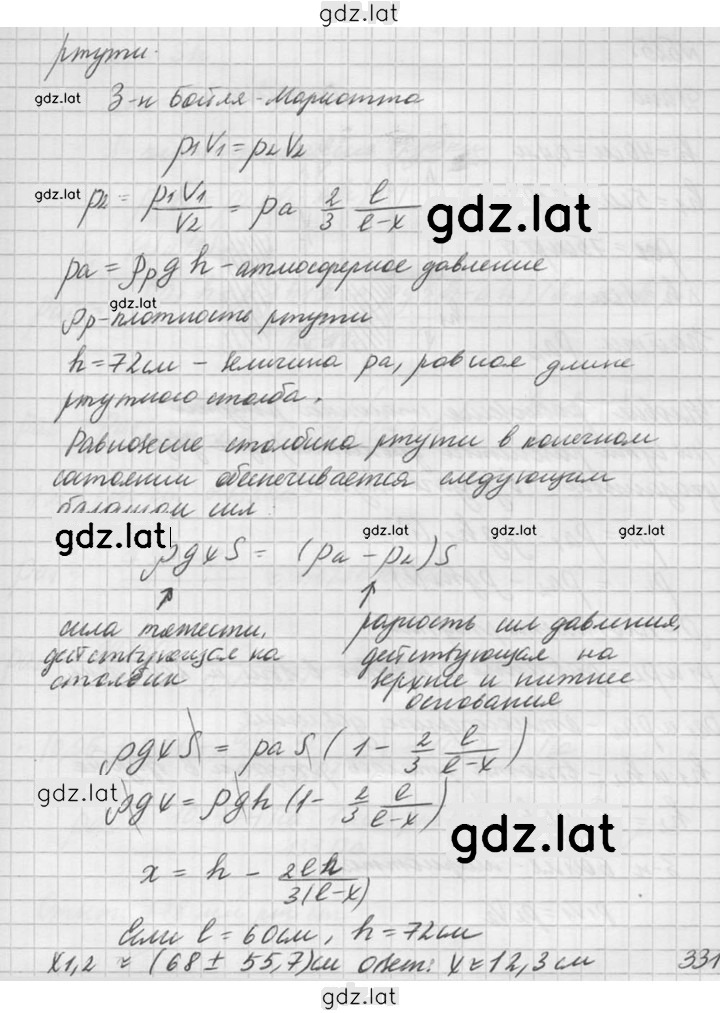 gdz.lat
ртути.
gdz.lat З-н Бойля-Мариотта
p₁V₁ = p₂V₂
gdz.lat p₂ = p₁V₁/V₂ = pa 2/3 l/(l-x) gdz.lat
pa = ρp g h - атмосферное давление
gdz.lat
ρp - плотность ртути
h = 72см - величина pa, равная длине
ртутного столба.
Равновесие столбика ртути в конечном
состоянии обеспечивается следующим
балансом сил:
gdz.lat gdz.lat gdz.lat gdz.lat
ρgxS = (pa - p₂)S
сила тяжести,
действующая на
столбик
разность сил давления,
действующая на
верхние и нижние
основания
ρgxS = paS(1 - 2/3 l/(l-x))
gdz.lat ρgx = ρgh(1 - 2/3 l/(l-x))
gdz.lat
x = h - 2lh/3(l-x)
Если l = 60см, h = 72см
x1,2 ≈ (68 ± 55,7)см Ответ: x ≈ 12,3см 331
gdz.lat